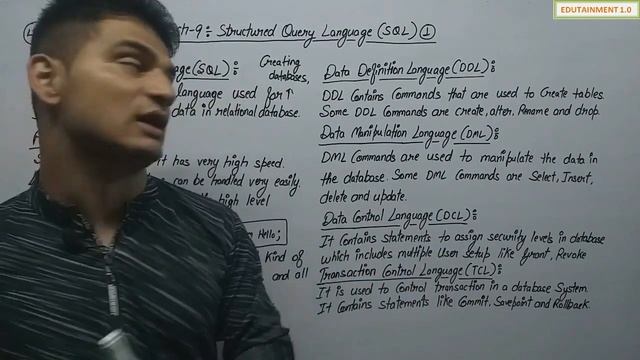 EDUTAINMENT 1.0
ch-9÷ Structured Query Language (SQL) ①
age (SQL)÷ Creating
databases,
language used for ↑
data in relational database.
it has very high speed.
can be handled very easily.
high level
Hello;
Kind of
and all
Data Definition Language (DDL)÷
DDL Contains Commands that are used to Create tables.
Some DDL Commands are create, alter, Rename and drop.
Data Manipulation Language (DML)÷
DML Commands are used to manipulate the data in
the database. Some DML Commands are Select, Insert,
delete and update.
Data Control Language (DCL)÷
It Contains statements to assign security levels in database
which includes multiple User setup like Grant, Revoke
Transaction Control Language (TCL)÷
It is used to Control transaction in a database System.
It Contains Statements like Commit, Savepoint and Rollback.